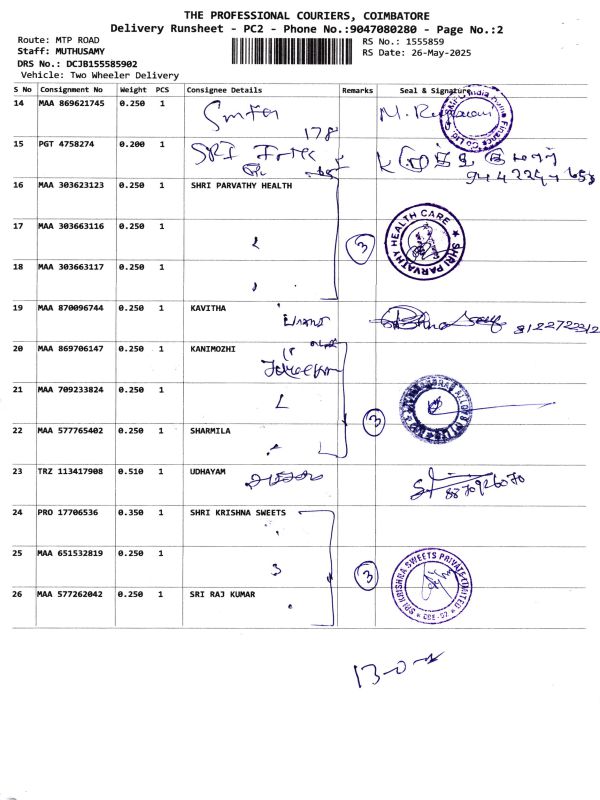 THE PROFESSIONAL COURIERS, COIMBATORE
Delivery Runsheet - PC2 - Phone No.:9047080280 - Page No.:2
Route: MTP ROAD
RS No.: 1555859
Staff: MUTHUSAMY
RS Date: 26-May-2025
DRS No.: DCJB155585902
Vehicle: Two Wheeler Delivery
S No Consignment No Weight PCS Consignee Details Remarks Seal & Signature
14 MAA 869621745 0.250 1
178
15 PGT 4758274 0.200 1 SRI
16 MAA 303623123 0.250 1 SHRI PARVATHY HEALTH
17 MAA 303663116 0.250 1
3
SHRI PARVATHY HEALTH CARE
18 MAA 303663117 0.250 1
19 MAA 870096744 0.250 1 KAVITHA
20 MAA 869706147 0.250 1 KANIMOZHI
21 MAA 709233824 0.250 1
3
22 MAA 577765402 0.250 1 SHARMILA
23 TRZ 113417908 0.510 1 UDHAYAM
8870926070
24 PRO 17706536 0.350 1 SHRI KRISHNA SWEETS
25 MAA 651532819 0.250 1
3 3
SRI KRISHNA SWEETS PRIVATE LIMITED
26 MAA 577262042 0.250 1 SRI RAJ KUMAR
13-0-